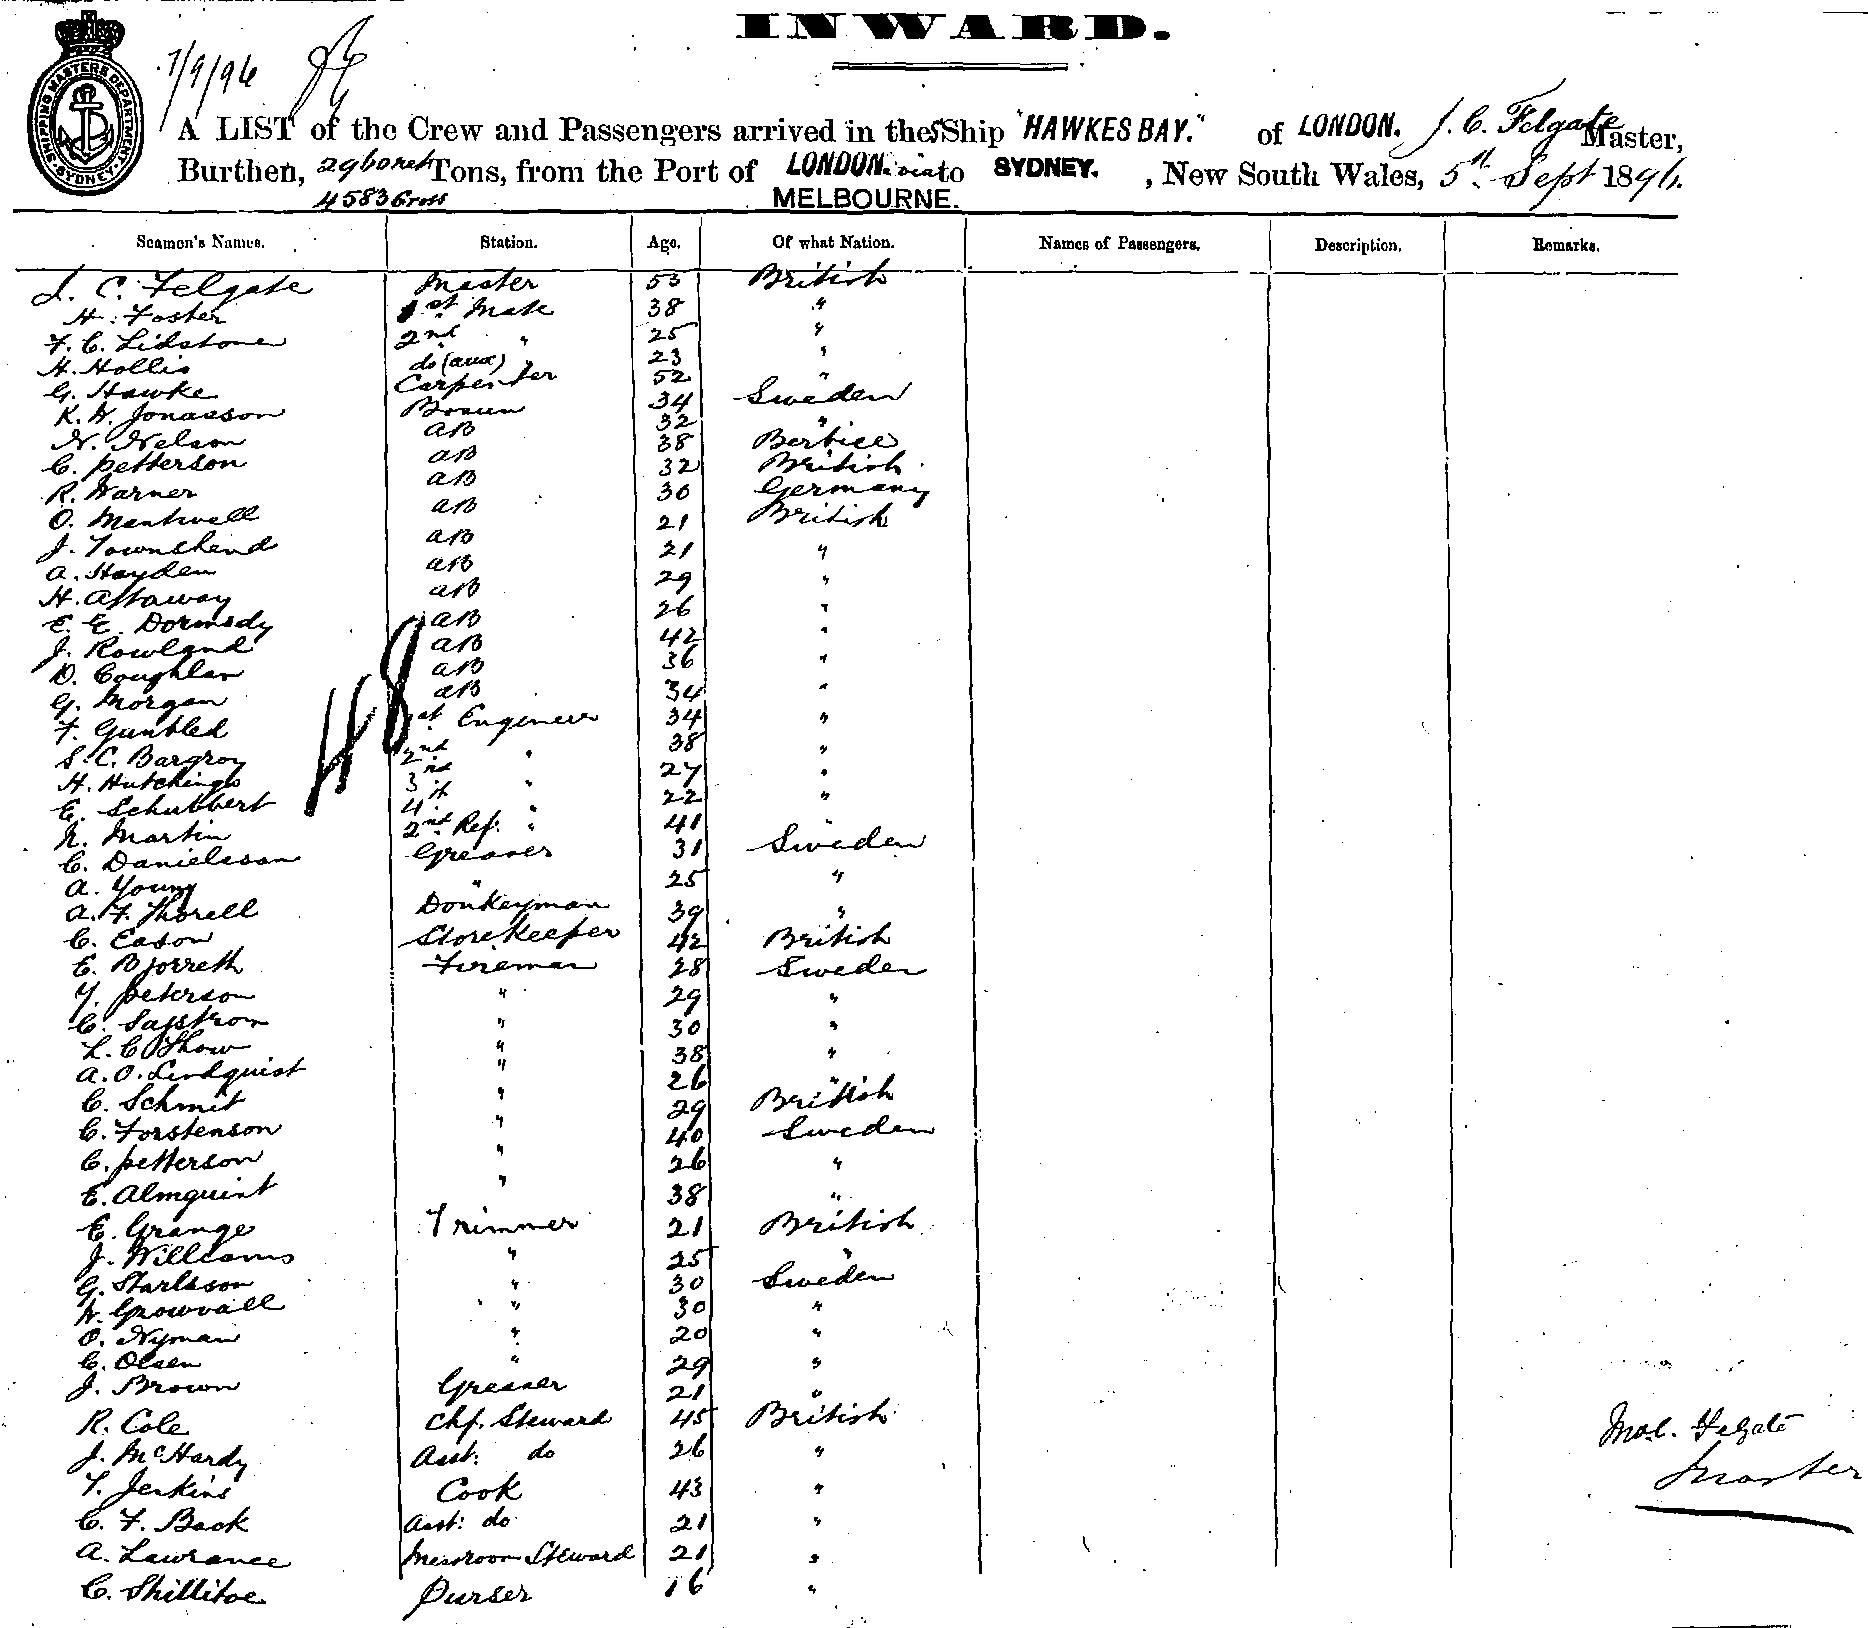 INWARD.
SHIPPING MASTERS DEPARTMENT SYDNEY
7/9/96
A LIST of the Crew and Passengers arrived in the SShip "HAWKES BAY." of LONDON. J. C. Felgate Master,
Burthen, 2960 nett Tons, from the Port of LONDON. via to SYDNEY. , New South Wales, 5th Sept 1896.
4583 Gross MELBOURNE.
Seamen's Names. Station. Age. Of what Nation. Names of Passengers. Description. Remarks.
J. C. Felgate Master 53 British
H. Foster 1st Mate 38 "
F. C. Lidstone 2nd " 25 "
H. Hollis do (aux) " 23 "
G. Hawke Carpenter 52 "
K. W. Jonasson Bosun 34 Sweden
N. Nelson AB 32 "
C. Petterson AB 38 Berbice
R. Warner AB 32 British
O. Mentwell AB 30 Germany
J. Townshend AB 21 British
A. Hayden AB 21 "
H. Attaway AB 29 "
E. E. Dormedy AB 26 "
J. Rowland AB 42 "
D. Coughlan AB 36 "
G. Morgan AB 34 "
F. Gunbled 1st Engineer 34 "
S. C. Bargroy 2nd " 38 "
H. Hutchings 3rd " 27 "
E. Schubbert 4th " 22 "
N. Martin 2nd Ref: " 41 "
C. Danielsson Greaser 31 Sweden
A. Young " 25 "
A. F. Thorell Donkeyman 39 "
C. Eason Storekeeper 42 British
E. Bjorreth Fireman 28 Sweden
Y. Peterson " 29 "
C. Safstrom " 30 "
L. C. Thow " 38 "
A. O. Lindquist " 26 "
C. Schmit " 29 British
C. Torstenson " 40 Sweden
C. Petterson " 26 "
E. Almquist " 38 "
E. Grange Trimmer 21 British
J. Williams " 25 "
G. Starlsson " 30 Sweden
W. Growvall " 30 "
O. Nyman " 20 "
C. Olsen " 29 "
J. Brown Greaser 21 "
R. Cole Chf. Steward 45 British
J. McHardy Asst: do 26 "
T. Jenkins Cook 43 "
C. F. Back Asst: do 21 "
A. Lawrance Messroom Steward 21 "
C. Shillitoe Purser 16 "
48
Jno. C. Felgate
Master